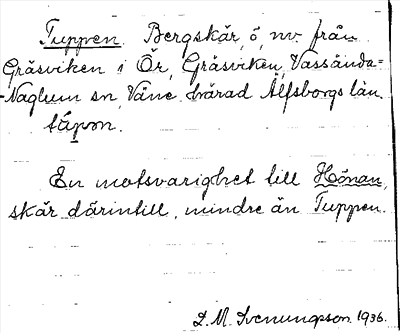 Tuppen. Bergskär, ö, nv. från
Gräsviken i Ör, Gräsviken, Vassända-
-Naglum sn, Väne härad Älfsborgs län
túpɔn.
En motsvarighet till Hönan,
skär därintill, mindre än Tuppen.
L. M. Svenungsson 1936.